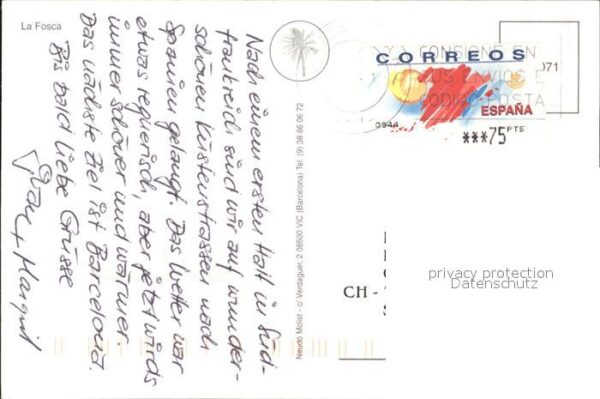 La Fosca
Nach einem ersten Halt in Süd-
frankreich sind wir auf wunder-
schönen Küstenstrassen nach
Spanien gelangt. Das Wetter war
etwas regnerisch, aber jetzt wird's
immer schöner und wärmer.
Das nächste Ziel ist Barcelona.
Bis bald liebe Grüsse
+ Margrit
Naudó Molist - c/ Verdaguer, 2 08500 VIC (Barcelona) Tel. (9) 38 86 06 72
CONSIGNE EN
CORREOS
071
CODIGO POSTAL
ESPAÑA
0944
***75 PTS
CH -
privacy protection
Datenschutz